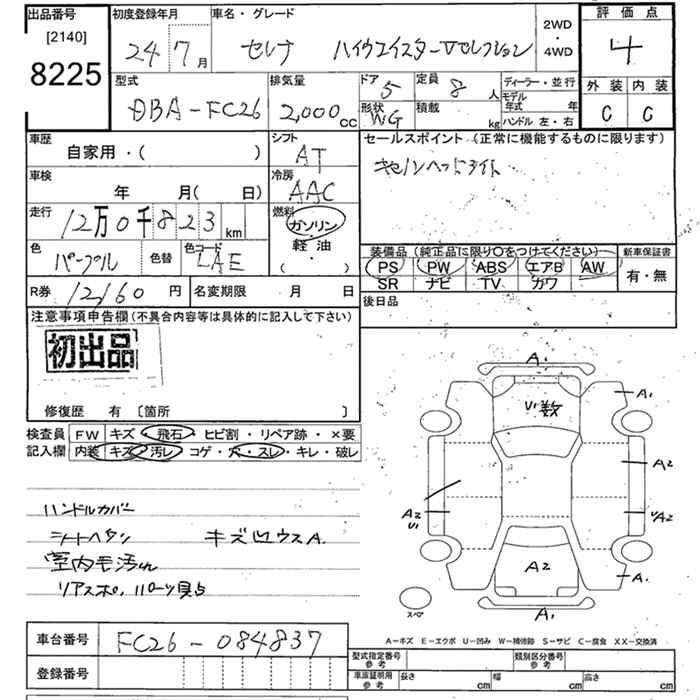 出品番号 [2140] 8225
初度登録年月 24年7月
車名・グレード セレナ ハイウェイスターVセレクション
2WD・4WD
評価点 4
外装 C 内装 C
型式 DBA-FC26
排気量 2,000cc
ドア 5
形状 WG
定員 8人
積載 kg
ディーラー・並行
モデル年式 年
ハンドル 左・右
車歴 自家用・( )
シフト AT
セールスポイント (正常に機能するものに限ります)
キセノンヘッドライト
車検 年 月( 日)
冷房 AAC
走行 12万0千823km
燃料 ガソリン・軽油 ( ・ )
色 パープル 色替 色コード LAE
装備品 (純正品に限り○をつけてください) 新車保証書
PS PW ABS エアB AW
SR ナビ TV カワ
有・無
R券 12160円 名変期限 月 日
後日品
注意事項申告欄(不具合内容等は具体的に記入して下さい)
初出品
修復歴 有 [箇所 ]
検査員 FW キズ・飛石・ヒビ割・リペア跡・×要
記入欄 内装 キズ・汚レ・コゲ・穴・スレ・キレ・破レ
ハンドルカバー
シートヘタリ キズ凹ウスA.
室内毛汚れ
リアスポ,
A1
A1
U1数
A2
A2 U1
A2
A2
A1
A1
スペア
A―キズ E―エクボ U―凹み W―補修跡 S―サビ C―腐食 XX―交換済
車台番号 FC26-084837
登録番号
型式指定番号 参考 類別区分番号 参考
車庫証明用 参考 長さ cm 幅 cm 高さ cm